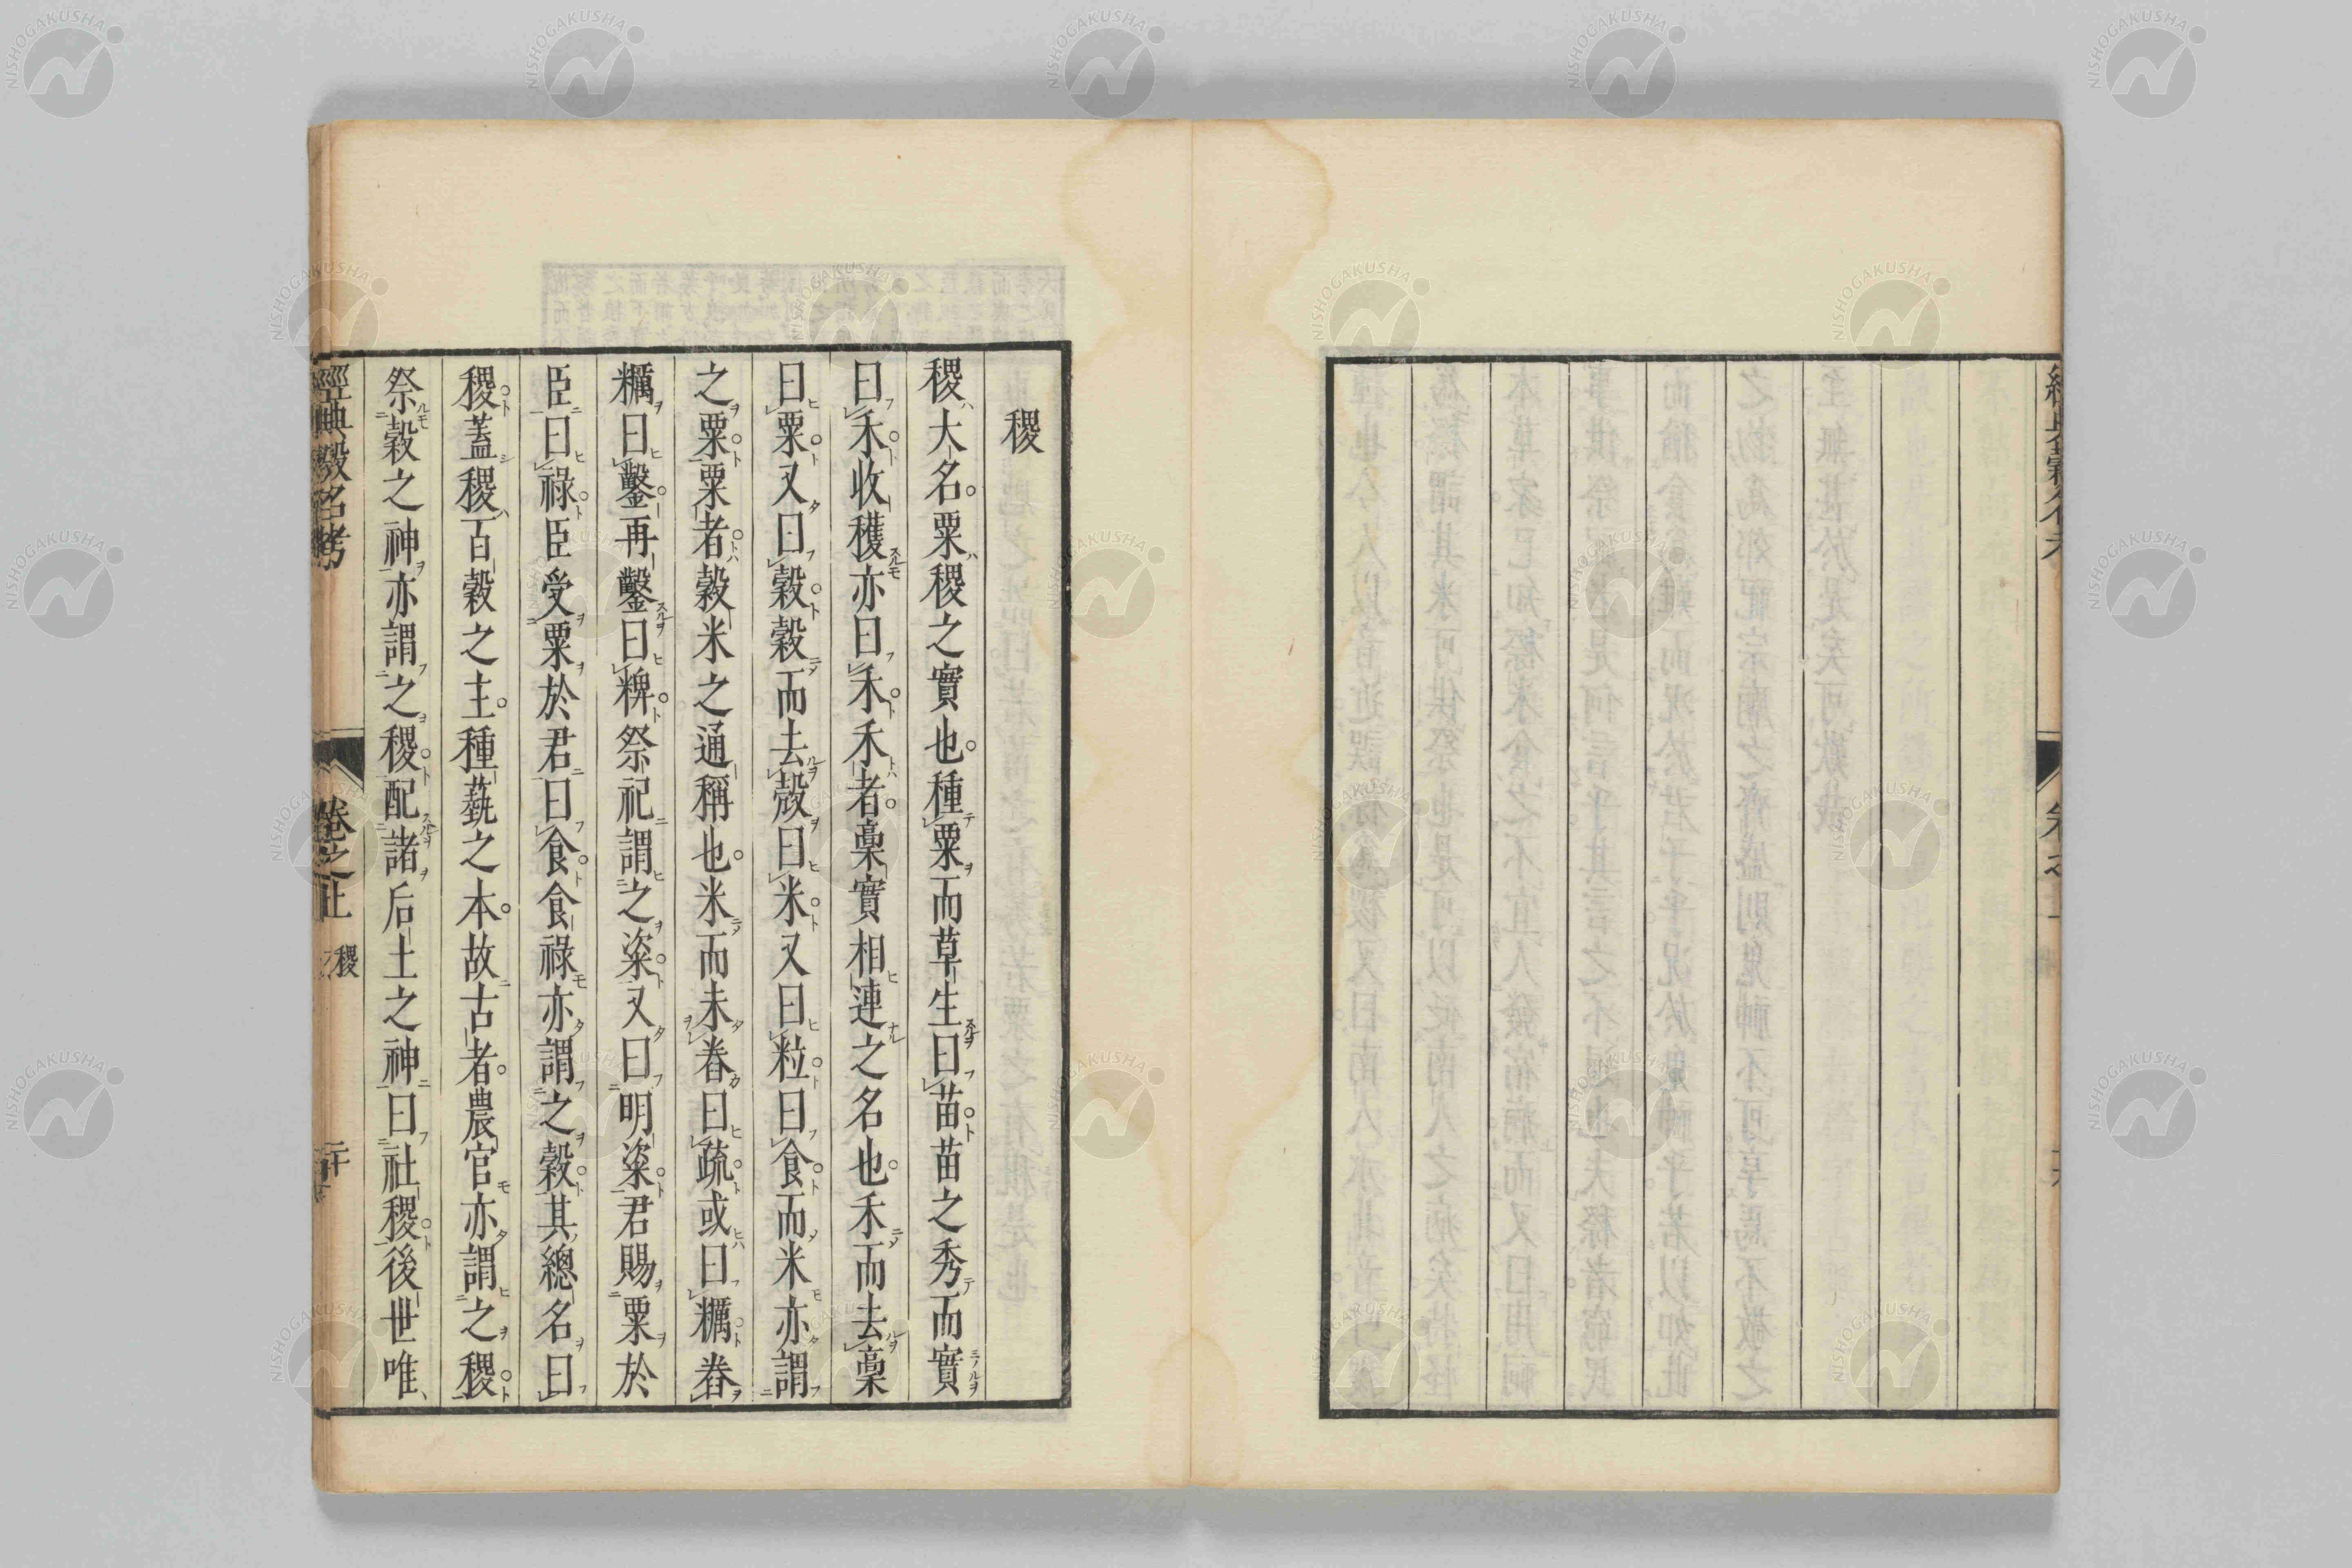 稷
稷大名粟稷之實也種粟而草生曰苗苗之秀而實
曰禾收穫亦曰禾禾者稾實相連之名也禾而去稾
曰粟又曰穀穀而去殼曰米又曰粒曰食而米亦謂
之粟粟者穀米之通稱也米而未舂曰疏或曰糲舂
糲曰鑿再鑿曰粺祭祀謂之粢又曰明粢君賜粟於
臣曰祿臣受粟於君曰食食祿亦謂之穀其總名曰
稷蓋稷百穀之主種蓺之本故古者農官亦謂之稷
祭穀之神亦謂之稷配諸后土之神曰社稷後世唯
經典穀名考 卷之上 稷 二十
NISHOGAKUSHA